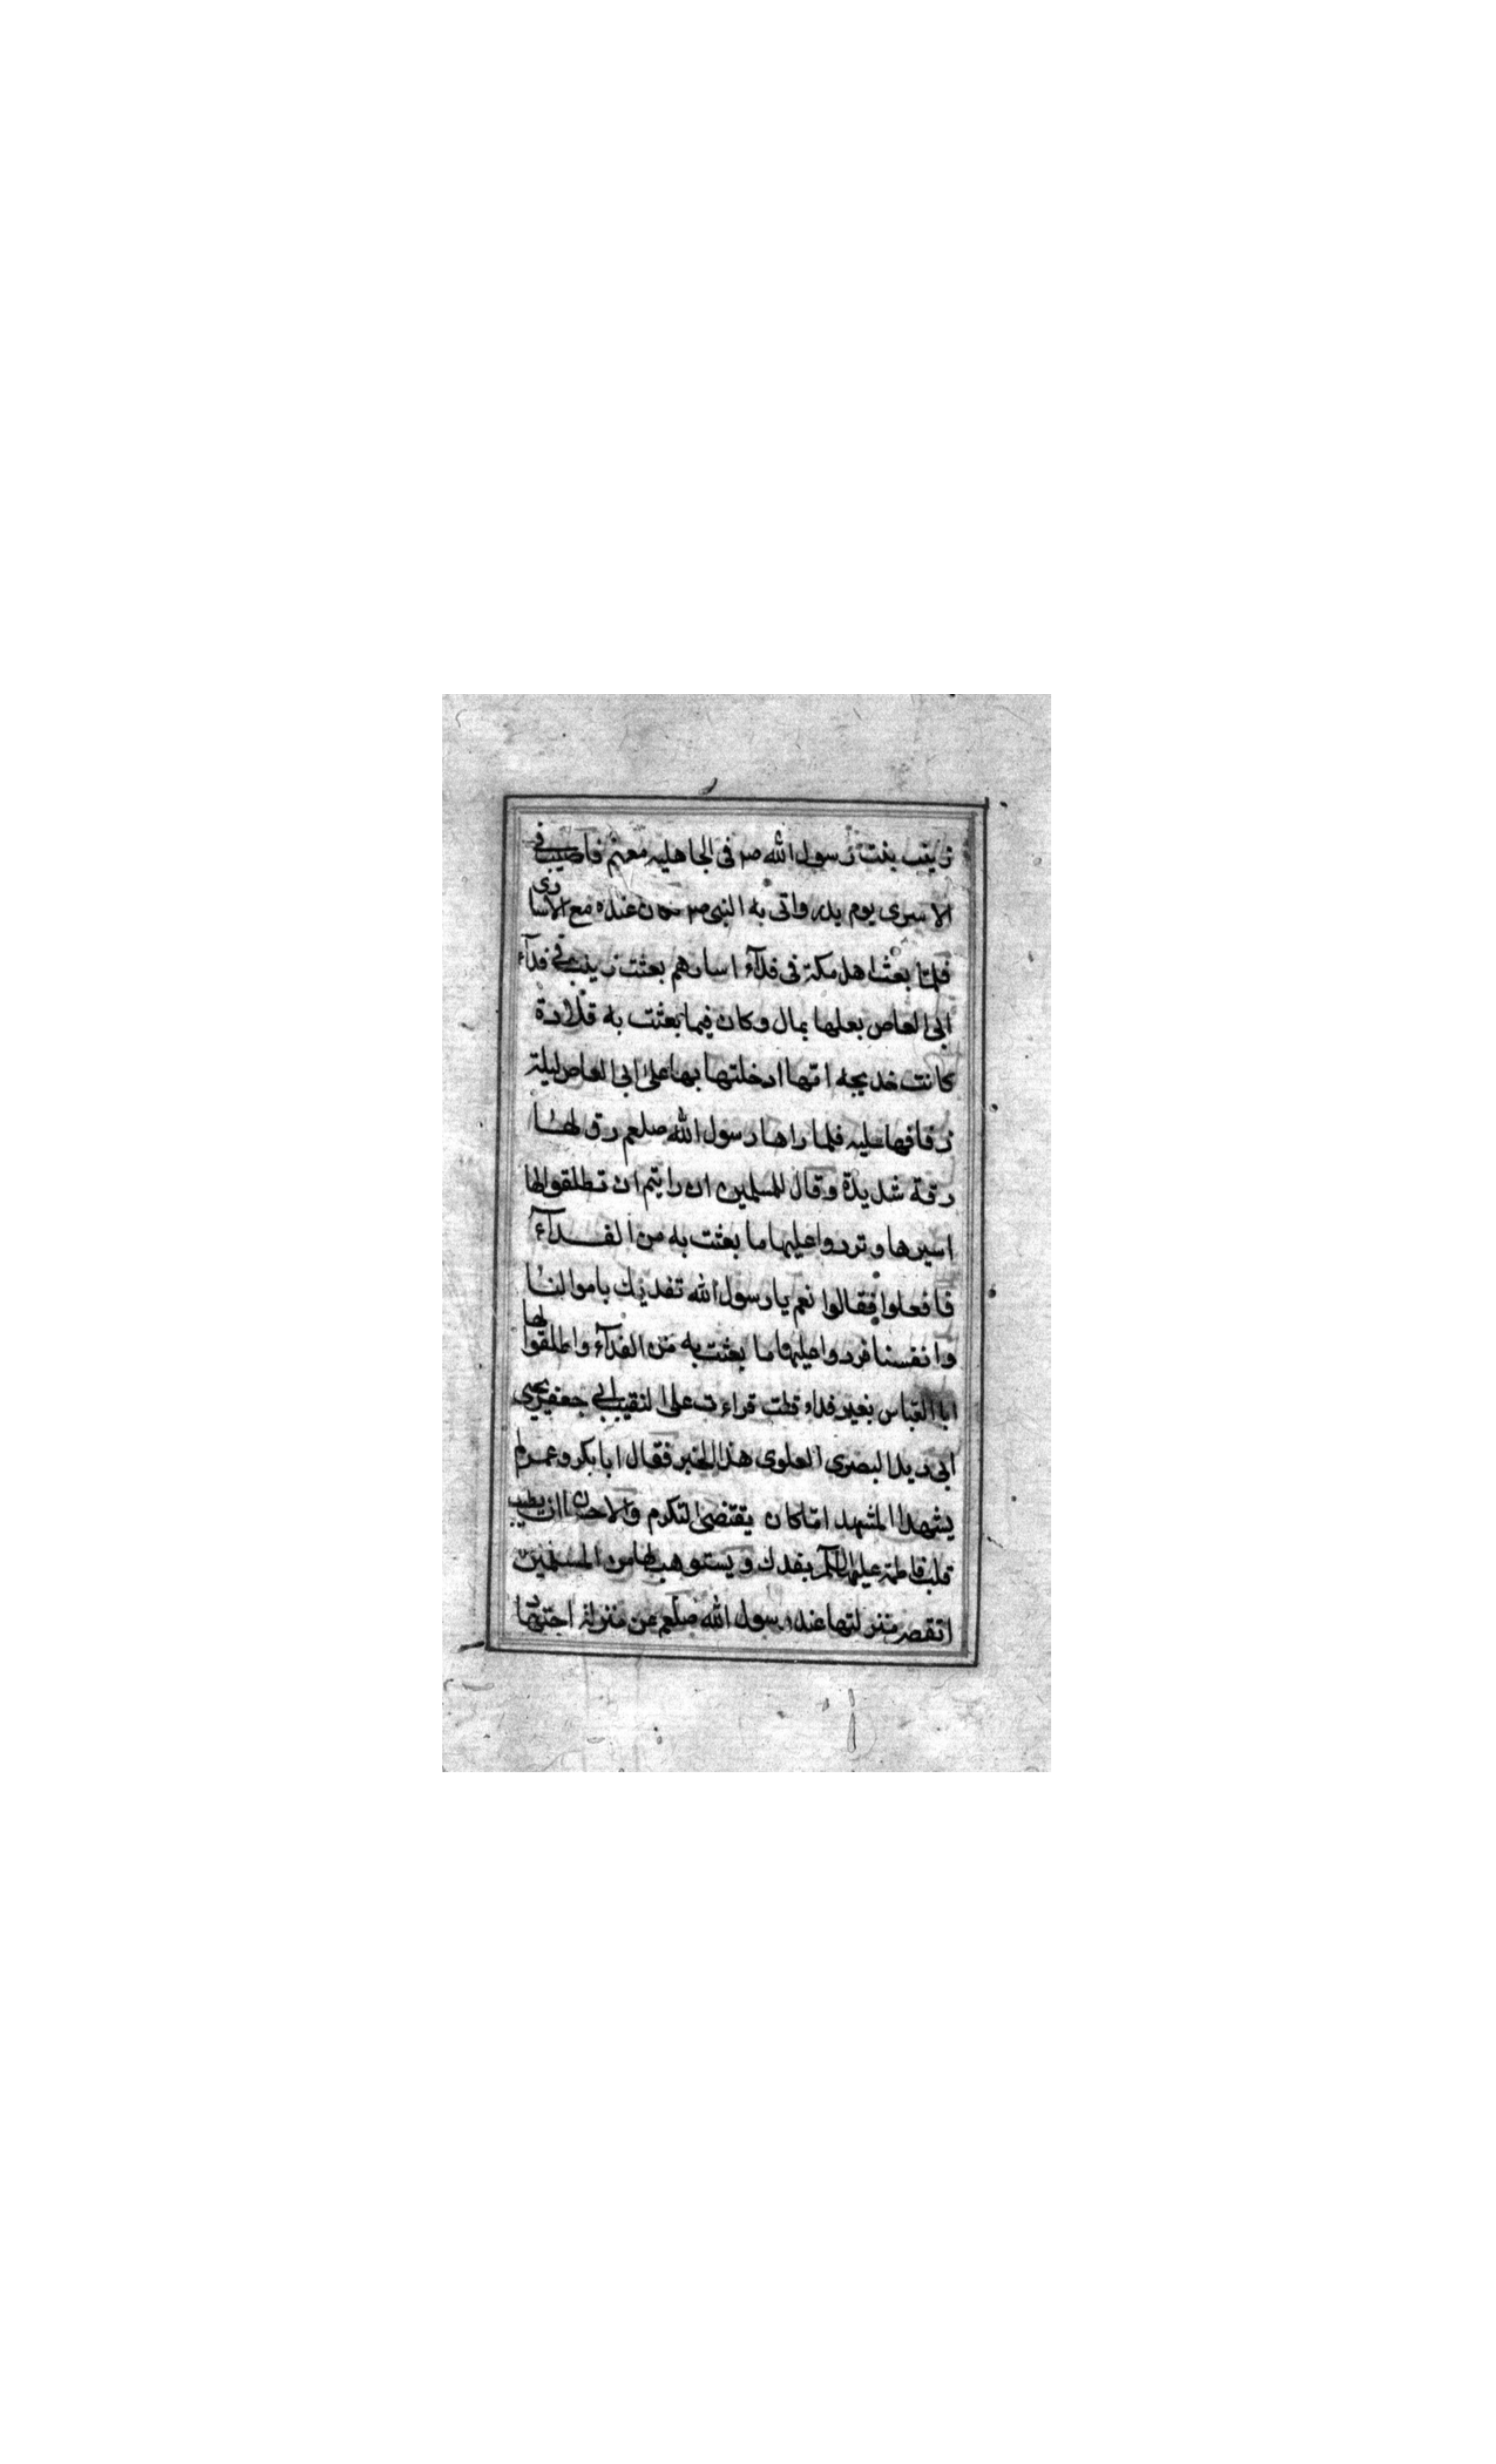 زينب بنت رسول الله صم فى الجاهليه معهم فاصيب فى
الاسرى يوم بدر واتى به النبى صم فكان عنده مع الاسارى
فلما بعث اهل مكة فى فدآء اسارهم بعثت زينب فى فدآء
ابى العاص بعلها بمال وكان فيما بعثت به قلادة
كانت خديجه امها ادخلتها بها على ابى العاص ليلة
زفافها عليه فلما راها رسول الله صلعم رق لها
رقة شديدة وقال للمسلمين ان رايتم ان تطلقوا لها
اسيرها وتردوا عليها ما بعثت به من الفدآء
فافعلوا فقالوا نعم يا رسول الله تفديك باموالنا
وانفسنا فردوا عليها ما بعثت به من الفدآء واطلقوا لها
ابا العباس بغير فداء قلت قراءت على النقيب ابى جعفر يحيى
ابى ديد البصرى العلوى هذا الخبر فقال ابا بكر وعمر لم
يشهدا المشهد اما كان يقتضى التكرم والاحسان ان يطيب
قلب فاطمة عليها السلم بفدك ويستوهب لها من المسلمين
اتقصر منزلتها عند رسول الله صلعم عن منزلة اختها